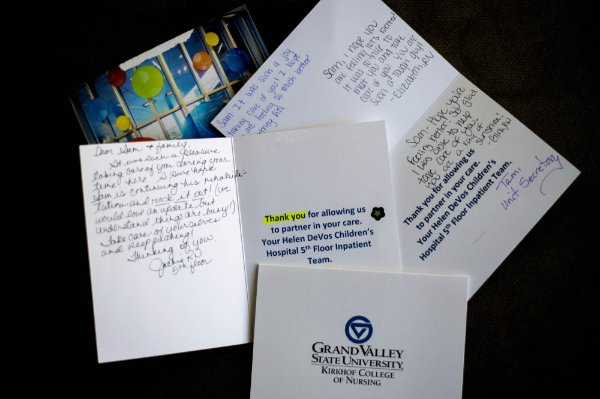 Dear Sam + family,
It was such a pleasure
taking care of you during your
time here. I'm sure
Sam is continuing his rehabili-
tation and rockin it out! (we
would love an update but
understand things are busy!)
Take care of yourselves
and keep pushing!
Thinking of you,
RN
5th floor
Sam It was such a joy
taking care of you! I hope
you are feeling so much better!
RN
Sam, I hope you
are feeling lots better!
It was so nice to
meet you and take
care of you. You are
such a tough guy!
-Elizabeth, RN
Sam- Hope you're
feeling better! So glad
I was able to help
take care of you.
You are a
RN
Thank you for allowing us
to partner in your care.
Your Helen DeVos Children's
Hospital 5th Floor Inpatient
Team.
Tami
Unit Secretary
Thank you for allowing us
to partner in your care.
Your Helen DeVos Children's
Hospital 5th Floor Inpatient
Team.
GRAND VALLEY
STATE UNIVERSITY
KIRKHOF COLLEGE
OF NURSING